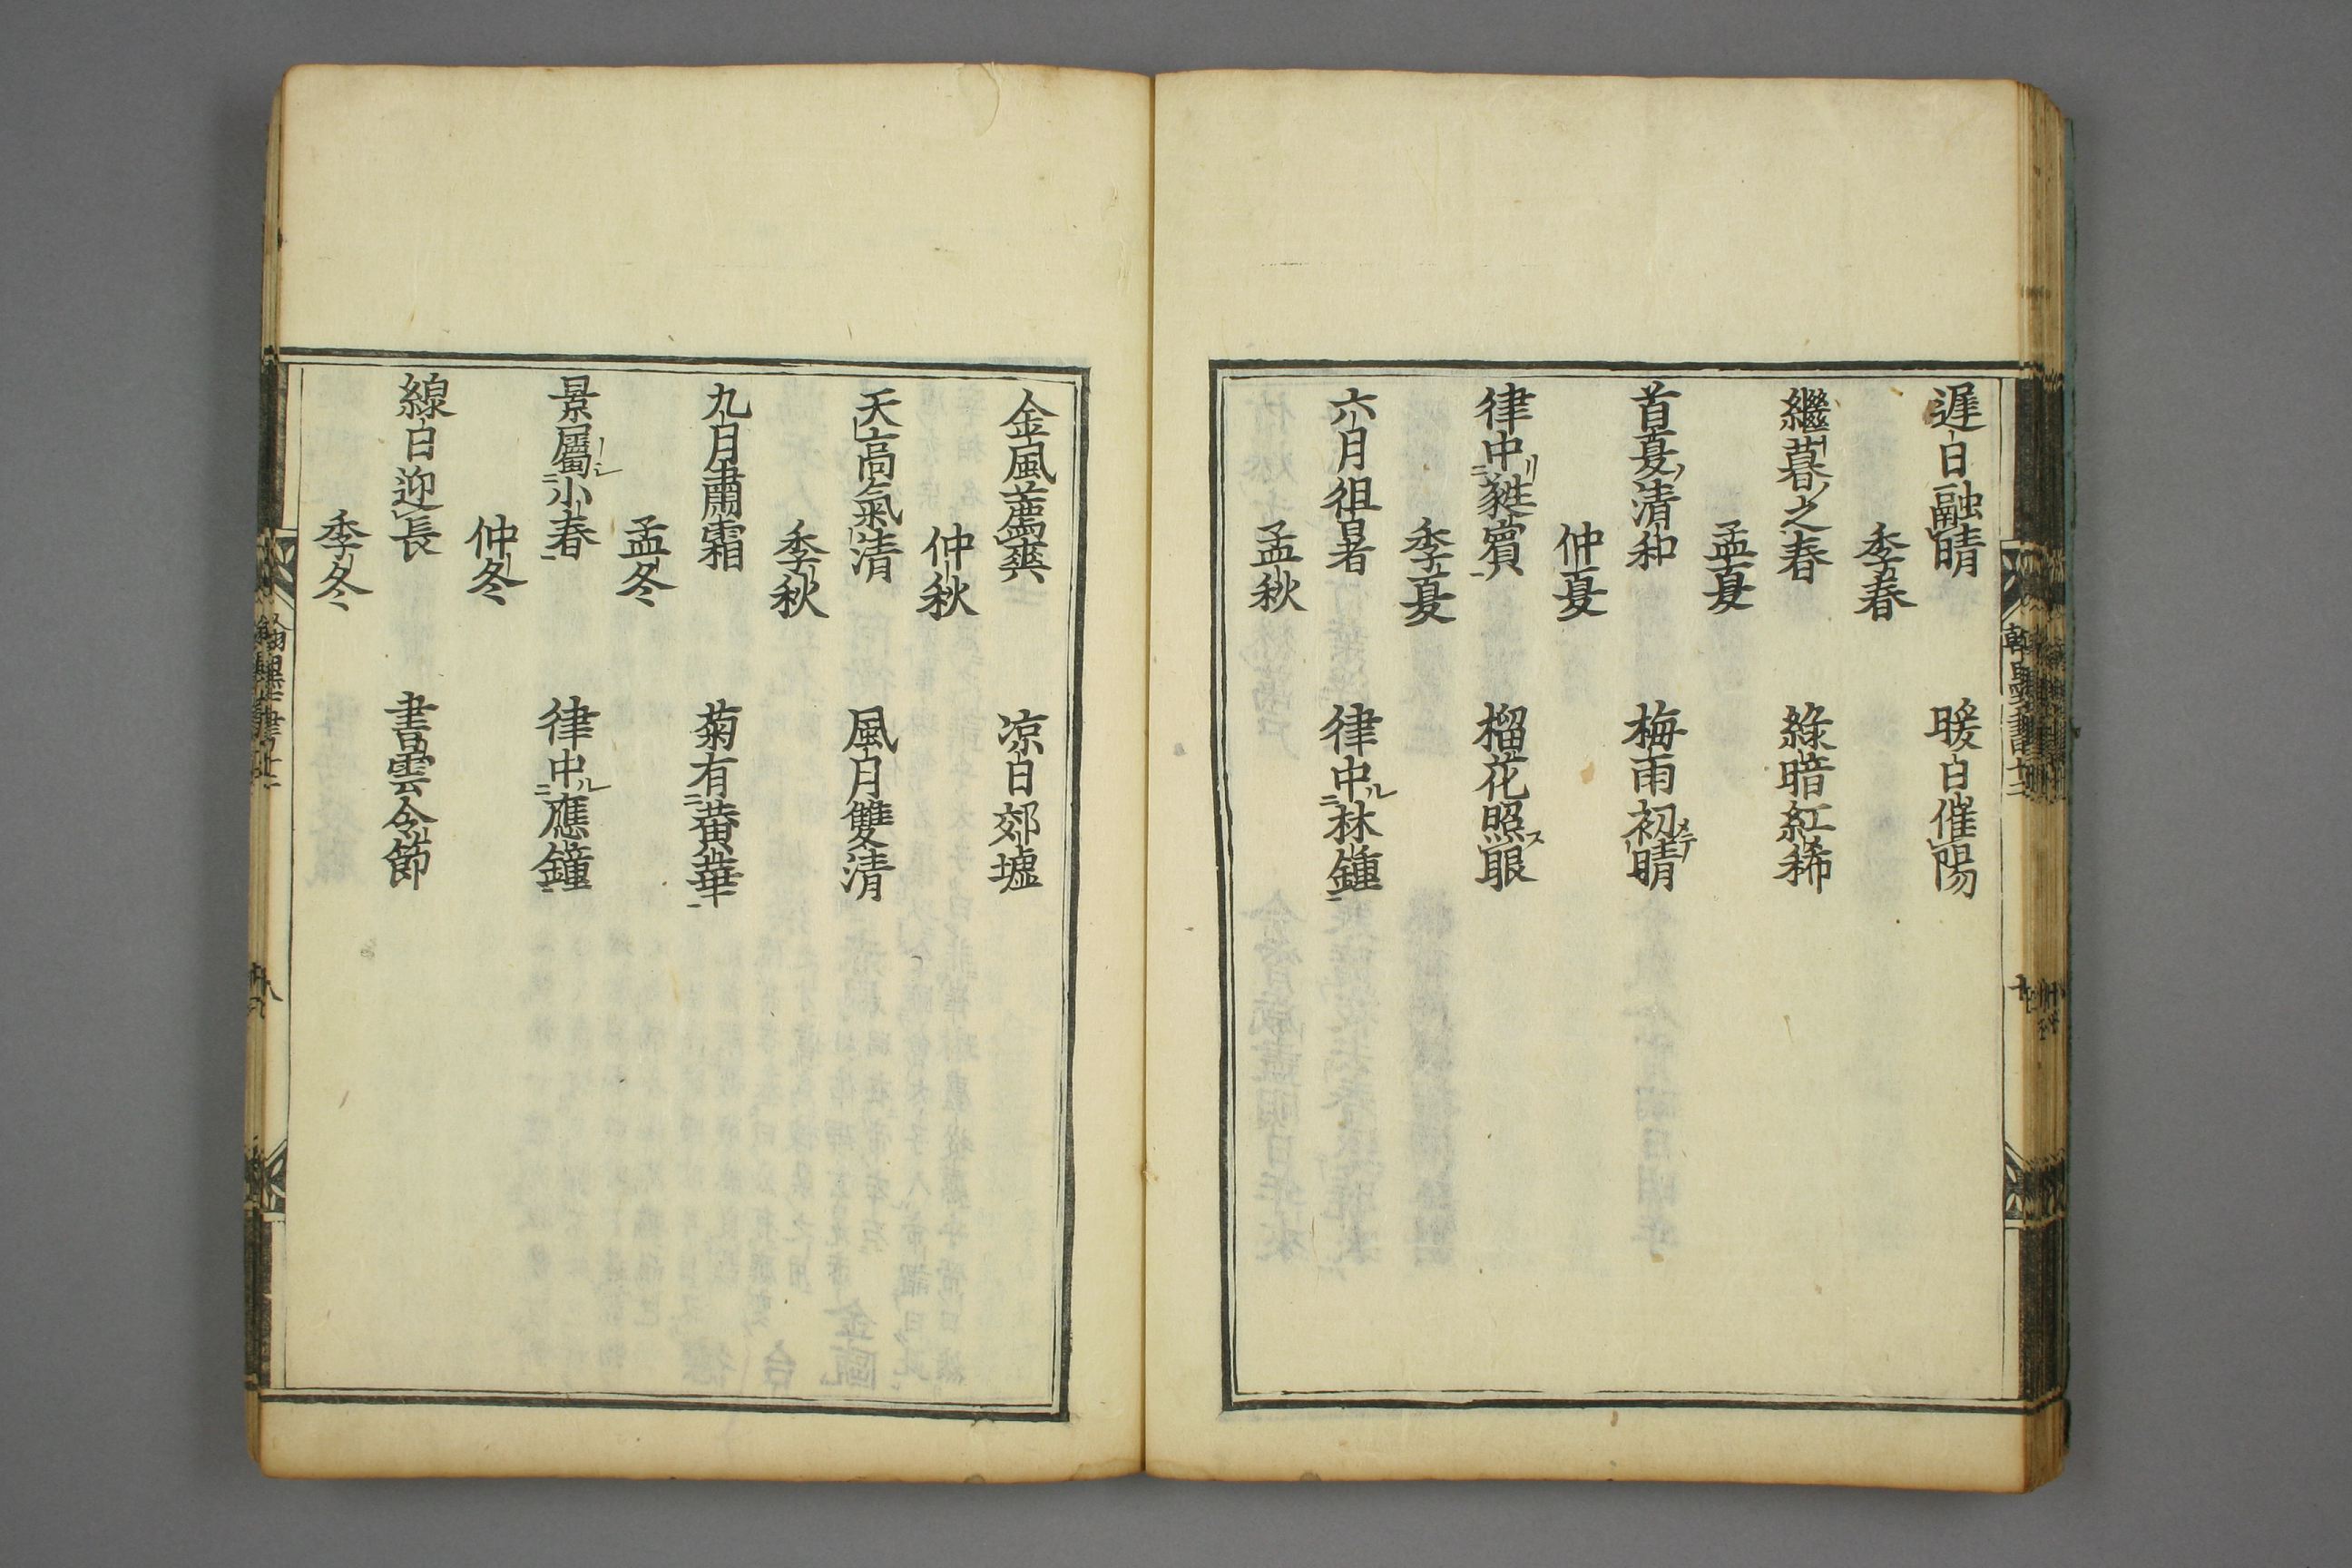 遲日融晴　暖日催陽
季春
繼暮之春　綠暗紅稀
孟夏
首夏清和　梅雨初晴
仲夏
律中蕤賓　榴花照眼
季夏
六月徂暑　律中林鍾
孟秋
金風薦爽　凉日郊墟
仲秋
天高氣清　風月雙清
季秋
九月肅霜　菊有黄華
孟冬
景屬小春　律中應鐘
仲冬
線日迎長　書雲令節
季冬